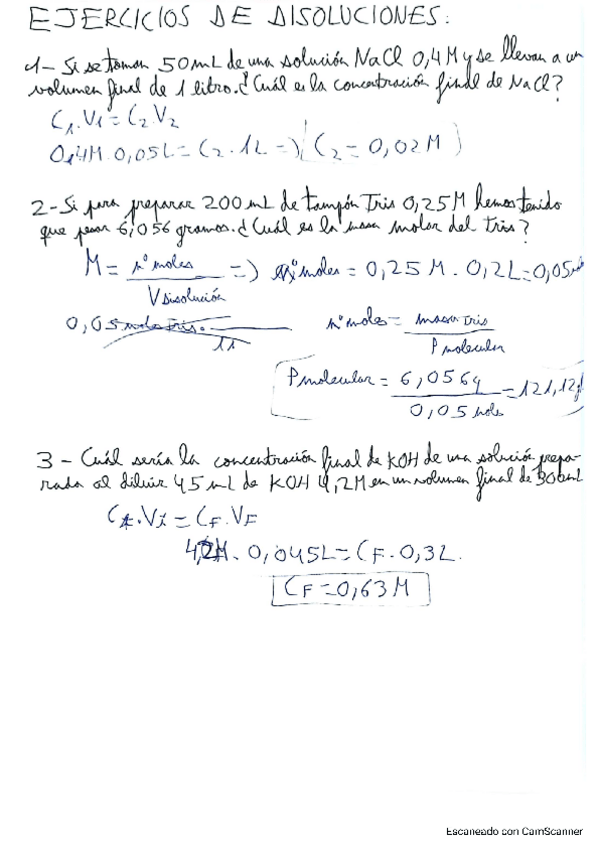 EJERCICIOS DE DISOLUCIONES:
1- Si se toman 50 mL de una solución NaCl 0,4M y se llevan a un
volumen final de 1 litro. ¿Cuál es la concentración final de NaCl?
C1.V1 = C2.V2
0,4M. 0,05L = C2 . 1L => C2 = 0,02 M
2- Si para preparar 200 mL de tampón Tris 0,25M hemos tenido
que pesar 6,056 gramos. ¿Cuál es la masa molar del tris?
M = nº moles / V Disolución => nº moles = 0,25 M . 0,2L = 0,05
0,05 mols tris. nº moles = masa tris / P molecular
1L
P molecular = 6,056g / 0,05 moles = 121,12g/
3 - Cuál sería la concentración final de KOH de una solución prepa-
rada al diluir 45 mL de KOH 4,2M en un volumen final de 300mL
CI.VI = CF.VF
4,2M. 0,045L = CF. 0,3L.
CF = 0,63 M
Escaneado con CamScanner